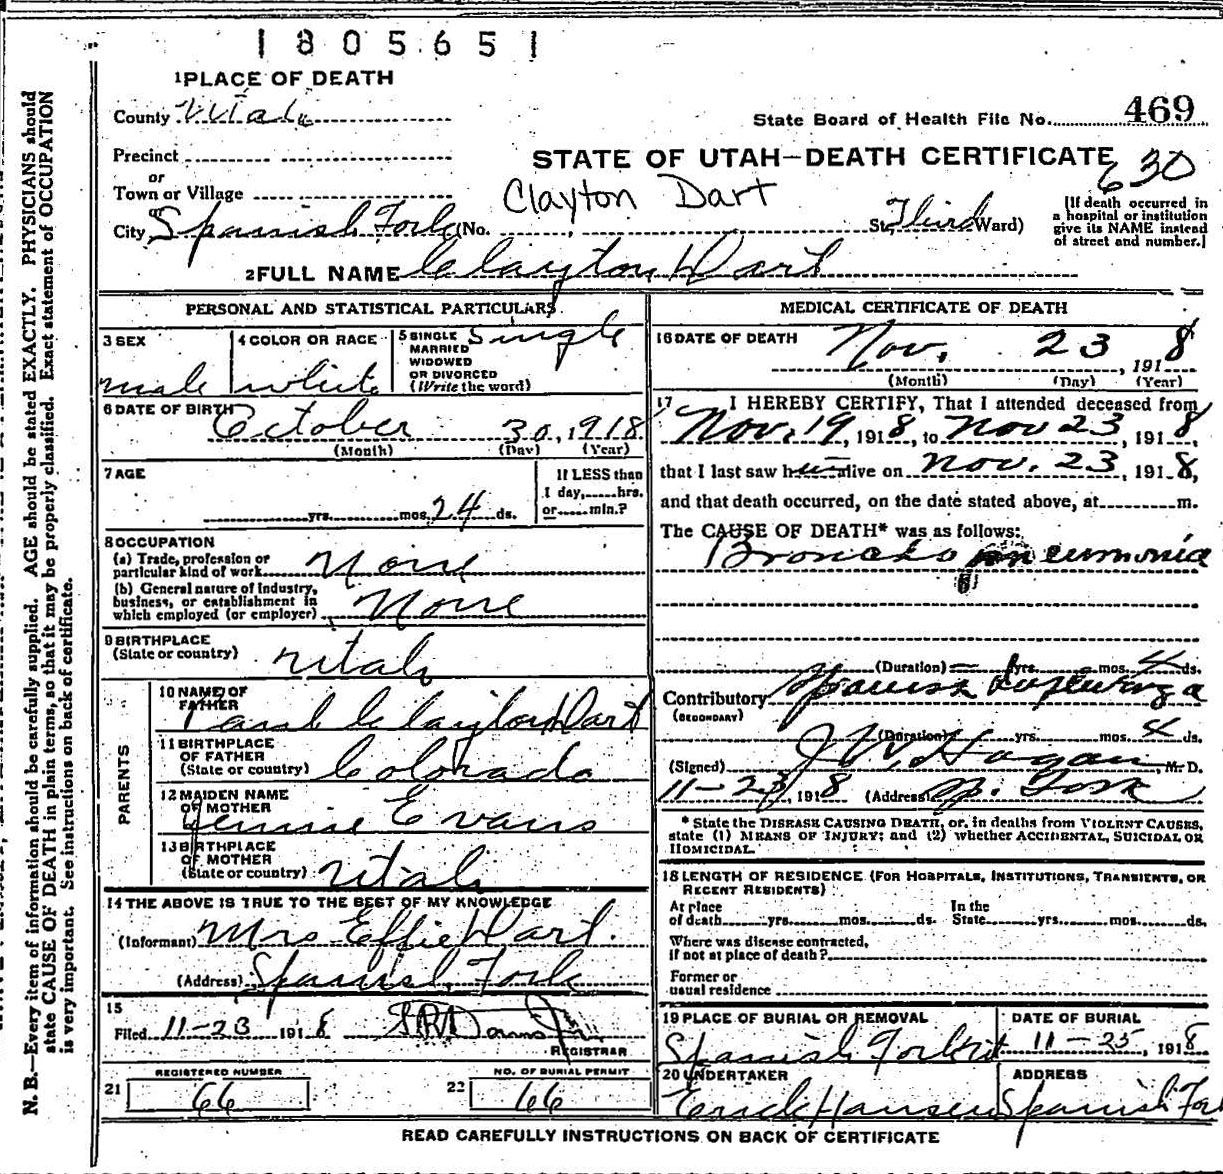 1805651
1 PLACE OF DEATH
County Utah
State Board of Health File No. 469
Precinct
or
Town or Village
STATE OF UTAH—DEATH CERTIFICATE 630
Clayton Dart
City Spanish Fork (No. St. Third Ward)
[If death occurred in
a hospital or institution
give its NAME instead
of street and number.]
2 FULL NAME Clayton Dart
PERSONAL AND STATISTICAL PARTICULARS
3 SEX
male
4 COLOR OR RACE
white
5 SINGLE
MARRIED
WIDOWED
OR DIVORCED
(Write the word)
Single
6 DATE OF BIRTH
October 30, 1918
(Month) (Day) (Year)
7 AGE
yrs. mos. 24 ds.
If LESS than
1 day, hrs.
or min.?
8 OCCUPATION
(a) Trade, profession or
particular kind of work None
(b) General nature of industry,
business, or establishment in
which employed (or employer) None
9 BIRTHPLACE
(State or country) Utah
PARENTS
10 NAME OF
FATHER
Clayton Dart
11 BIRTHPLACE
OF FATHER
(State or country) Colorado
12 MAIDEN NAME
OF MOTHER
Jennie Evans
13 BIRTHPLACE
OF MOTHER
(State or country) Utah
14 THE ABOVE IS TRUE TO THE BEST OF MY KNOWLEDGE
(Informant) Mrs Effie Dart.
(Address) Spanish Fork
15
Filed 11-23 1918
REGISTRAR
21 REGISTERED NUMBER
66
22 NO. OF BURIAL PERMIT
66
MEDICAL CERTIFICATE OF DEATH
16 DATE OF DEATH
Nov. 23, 1918
(Month) (Day) (Year)
17 I HEREBY CERTIFY, That I attended deceased from
Nov. 19, 1918, to Nov 23, 1918,
that I last saw him alive on Nov. 23, 1918,
and that death occurred, on the date stated above, at m.
The CAUSE OF DEATH* was as follows:
Broncho pneumonia
(Duration) yrs. mos. 4 ds.
Contributory Spanish
(SECONDARY)
(Duration) yrs. mos. 4 ds.
(Signed) J. W. Hagan, M. D.
11-23, 1918 (Address) Sp. Fork
* State the DISEASE CAUSING DEATH, or, in deaths from VIOLENT CAUSES,
state (1) MEANS OF INJURY; and (2) whether ACCIDENTAL, SUICIDAL OR
HOMICIDAL.
18 LENGTH OF RESIDENCE (FOR HOSPITALS, INSTITUTIONS, TRANSIENTS, OR
RECENT RESIDENTS)
At place
of death yrs. mos. ds.
In the
State yrs. mos. ds.
Where was disease contracted,
if not at place of death?
Former or
usual residence
19 PLACE OF BURIAL OR REMOVAL
Spanish Fork
DATE OF BURIAL
11-25, 1918
20 UNDERTAKER
Hansen
ADDRESS
Spanish Fork
READ CAREFULLY INSTRUCTIONS ON BACK OF CERTIFICATE
N. B.—Every item of information should be carefully supplied. AGE should be stated EXACTLY. PHYSICIANS should
state CAUSE OF DEATH in plain terms, so that it may be properly classified. Exact statement of OCCUPATION
is very important. See instructions on back of certificate.